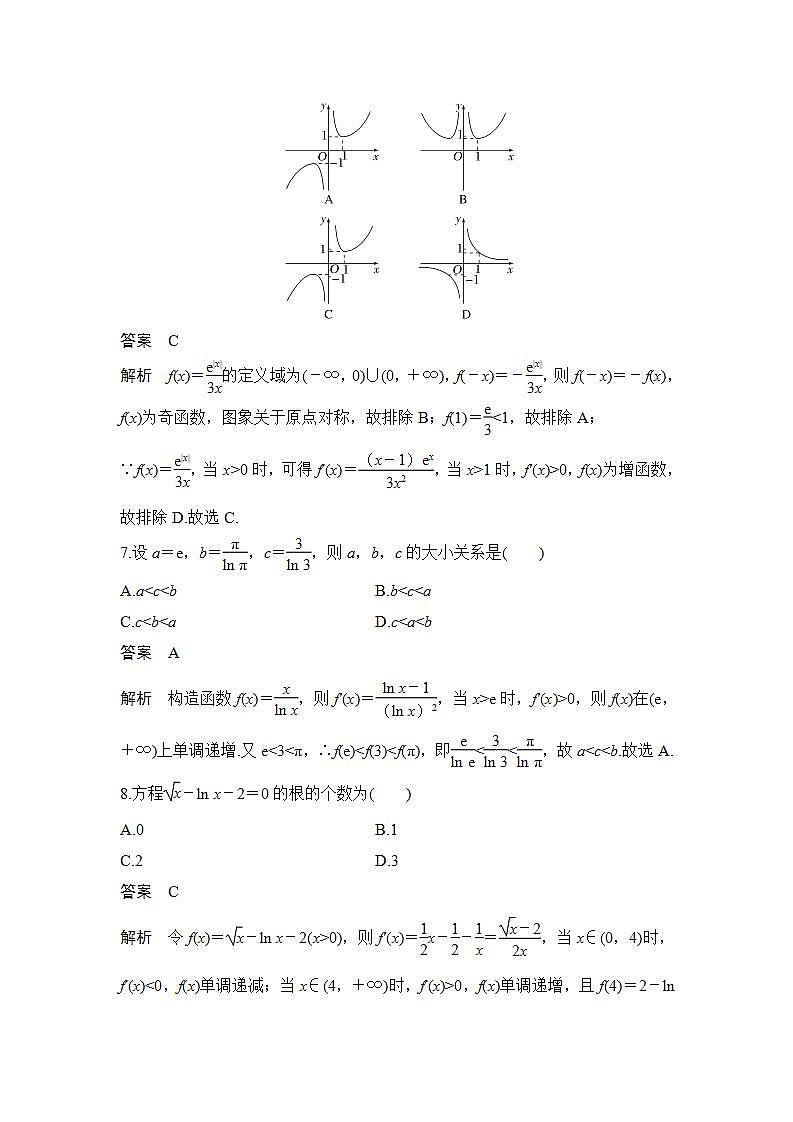 y y
1 1
O 1 x O 1 x
−1
A B
y y
1 1
O 1 x O 1 x
−1 −1
C D
答案 C
解析 f(x)=e^{|x|}/3x的定义域为(-∞,0)∪(0,+∞),f(-x)=-e^{|x|}/3x,则f(-x)=-f(x),
f(x)为奇函数,图象关于原点对称,故排除B;f(1)=e/3<1,故排除A;
∵f(x)=e^{|x|}/3x,当x>0时,可得f′(x)=(x-1)e^x/3x²,当x>1时,f′(x)>0,f(x)为增函数,
故排除D.故选C.
7.设a=e,b=π/ln π,c=3/ln 3,则a,b,c的大小关系是( )
A.a<c<b B.b<c<a
C.c<b<a D.c<a<b
答案 A
解析 构造函数f(x)=x/ln x,则f′(x)=ln x-1/(ln x)²,当x>e时,f′(x)>0,则f(x)在(e,
+∞)上单调递增.又e<3<π,∴f(e)<f(3)<f(π),即e/ln e<3/ln 3<π/ln π,故a<c<b.故选A.
8.方程√x-ln x-2=0的根的个数为( )
A.0 B.1
C.2 D.3
答案 C
解析 令f(x)=√x-ln x-2(x>0),则f′(x)=1/2x-1/2-1/x=√x-2/2x,当x∈(0,4)时,
f′(x)<0,f(x)单调递减;当x∈(4,+∞)时,f′(x)>0,f(x)单调递增,且f(4)=2-ln